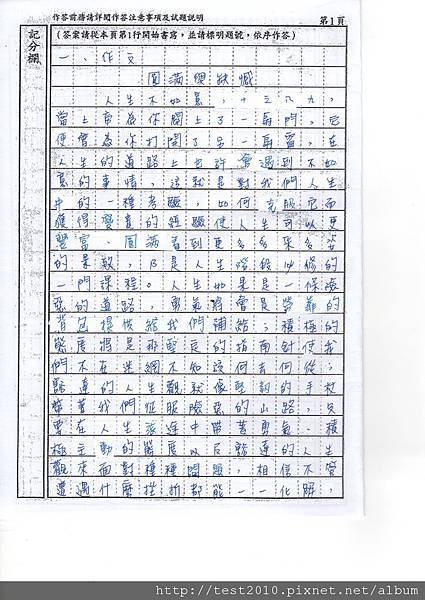 作答前務請詳閱作答注意事項及試題說明
第1頁
記分欄
(答案請從本頁第1行開始書寫,並請標明題號,依序作答)
一、作文
圓滿與缺憾
人生不如意,十之八九,
當上帝為你關上了一扇門,也
便會為你打開了另一扇窗,在
人生的道路上也許會遇到不如
意的事情,這就是對我們人生
中的一種考驗,如何克服它而
獲得寶貴的經驗使人生可以更
豐富、圓滿看到更多多采多姿
的景致,乃是人生階段必修的
一門課程。人生如果是一條漫
的道路,勇氣將會是營養的
背包提供給我們補給;積極的
態度將是那堅定的指南針使我
們不在迷網不知該何去何從;
豁達的人生觀就像堅韌的手杖
帶著我們征服險惡的山路,只
要在人生旅途中帶著勇氣、積
極主動的態度以及豁達的人生
觀來面對種種問題,相信不管
遭遇什麼挫折都能一一化解,
http://test2010.pixnet.net/album